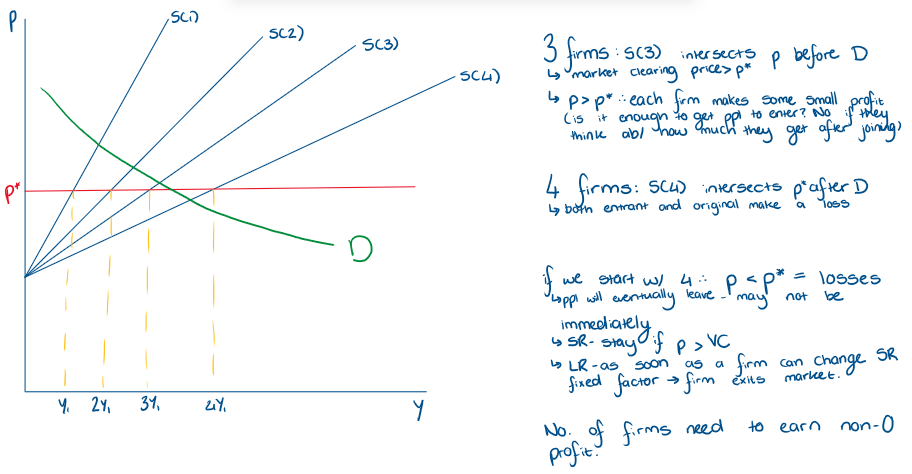 P
S(1)
S(2)
S(3)
S(4)
P*
D
y₁
2y₁
3y₁
4y₁
y
3 firms : S(3) intersects p before D
↳ market clearing price > p*
↳ p > p* ∴ each firm makes some small profit
(is it enough to get ppl to enter? No if they
think ab/ how much they get after joining)
4 firms: S(4) intersects p* after D
↳ both entrant and original make a loss
if we start w/ 4 ∴ p < p* = losses
↳ ppl will eventually leave - may not be
immediately
↳ SR - stay if p > VC
↳ LR - as soon as a firm can change SR
fixed factor → firm exits market.
No. of firms need to earn non-0
profit.